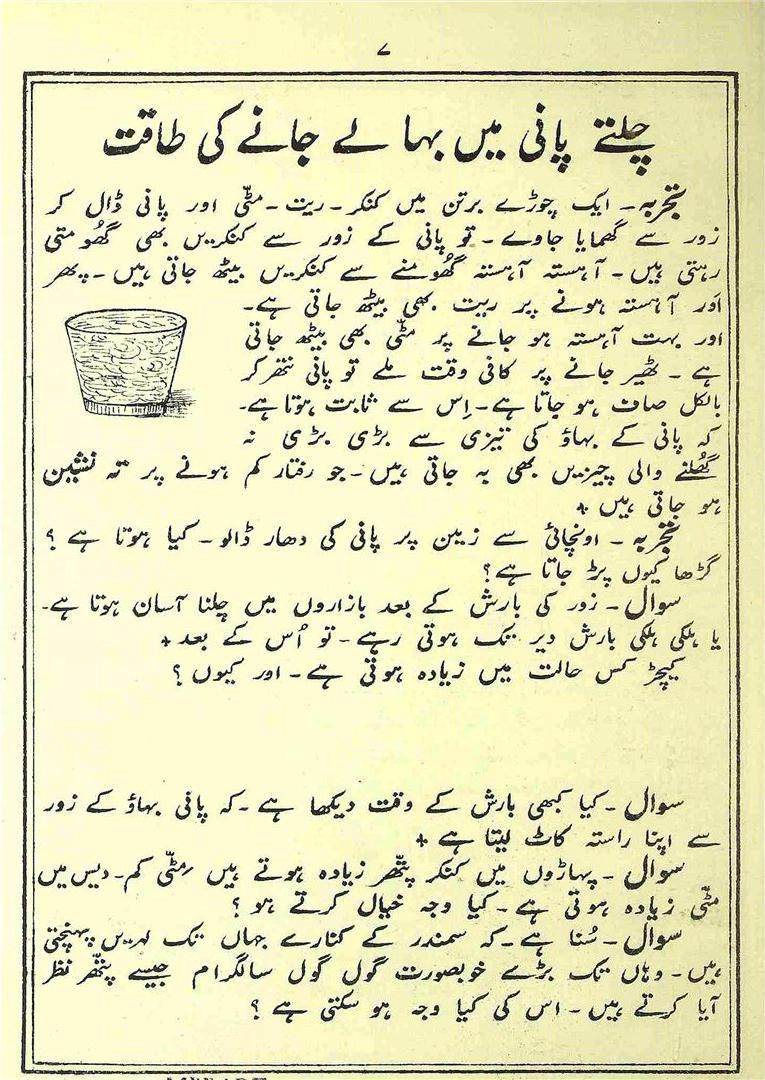 ۷
چلتے پانی میں بہا لے جانے کی طاقت
تجربہ۔ ایک چوڑے برتن میں کنکر۔ ریت۔ مٹّی اور پانی ڈال کر
زور سے گھمایا جاوے۔ تو پانی کے زور سے کنکریں بھی گھومتی
رہتی ہیں۔ آہستہ آہستہ گھُومنے سے کنکریں بیٹھ جاتی ہیں۔ پھر
اَور آہستہ ہونے پر ریت بھی بیٹھ جاتی ہے۔
اور بہت آہستہ ہو جانے پر مٹّی بھی بیٹھ جاتی
ہے۔ ٹھیر جانے پر کافی وقت ملے تو پانی نتھر کر
بالکل صاف ہو جاتا ہے۔ اِس سے ثابت ہوتا ہے۔
کہ پانی کے بہاؤ کی تیزی سے بڑی بڑی نہ
گھُلنے والی چیزیں بھی بہ جاتی ہیں۔ جو رفتار کم ہونے پر تہ نشین
ہو جاتی ہیں +
تجربہ۔ اونچائی سے زمین پر پانی کی دھار ڈالو۔ کیا ہوتا ہے؟
گڑھا کیوں پڑ جاتا ہے؟
سوال۔ زور کی بارش کے بعد بازاروں میں چلنا آسان ہوتا ہے۔
یا ہلکی ہلکی بارش دیر تک ہوتی رہے۔ تو اُس کے بعد +
کیچڑ کس حالت میں زیادہ ہوتی ہے۔ اور کیوں؟
سوال۔ کیا کبھی بارش کے وقت دیکھا ہے۔ کہ پانی بہاؤ کے زور
سے اپنا راستہ کاٹ لیتا ہے +
سوال۔ پہاڑوں میں کنکر پتھّر زیادہ ہوتے ہیں مٹّی کم۔ دیس میں
مٹّی زیادہ ہوتی ہے۔ کیا وجہ خیال کرتے ہو؟
سوال۔ سُنا ہے۔ کہ سمندر کے کنارے جہاں تک لہریں پہنچتی
ہیں۔ وہاں تک بڑے خوبصورت گول گول سالگرام جیسے پتھّر نظر
آیا کرتے ہیں۔ اس کی کیا وجہ ہو سکتی ہے؟